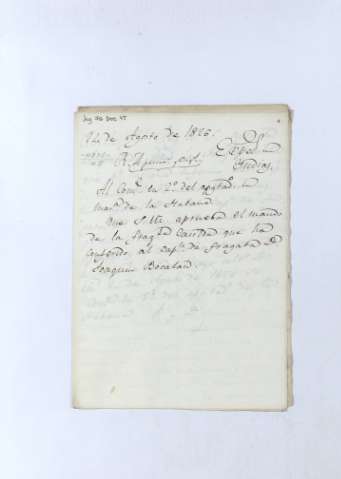 24 de Agosto de 1826.
Indias.
Al Com.e en 2.o del apostad.o de
mar.a de la Habana
Que S. M. aprueba el mando
de la frag.ta Casilda que ha
conferido al cap.n de fragata D.n
Joaquin Bocalan